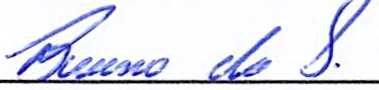 Bruno da S.